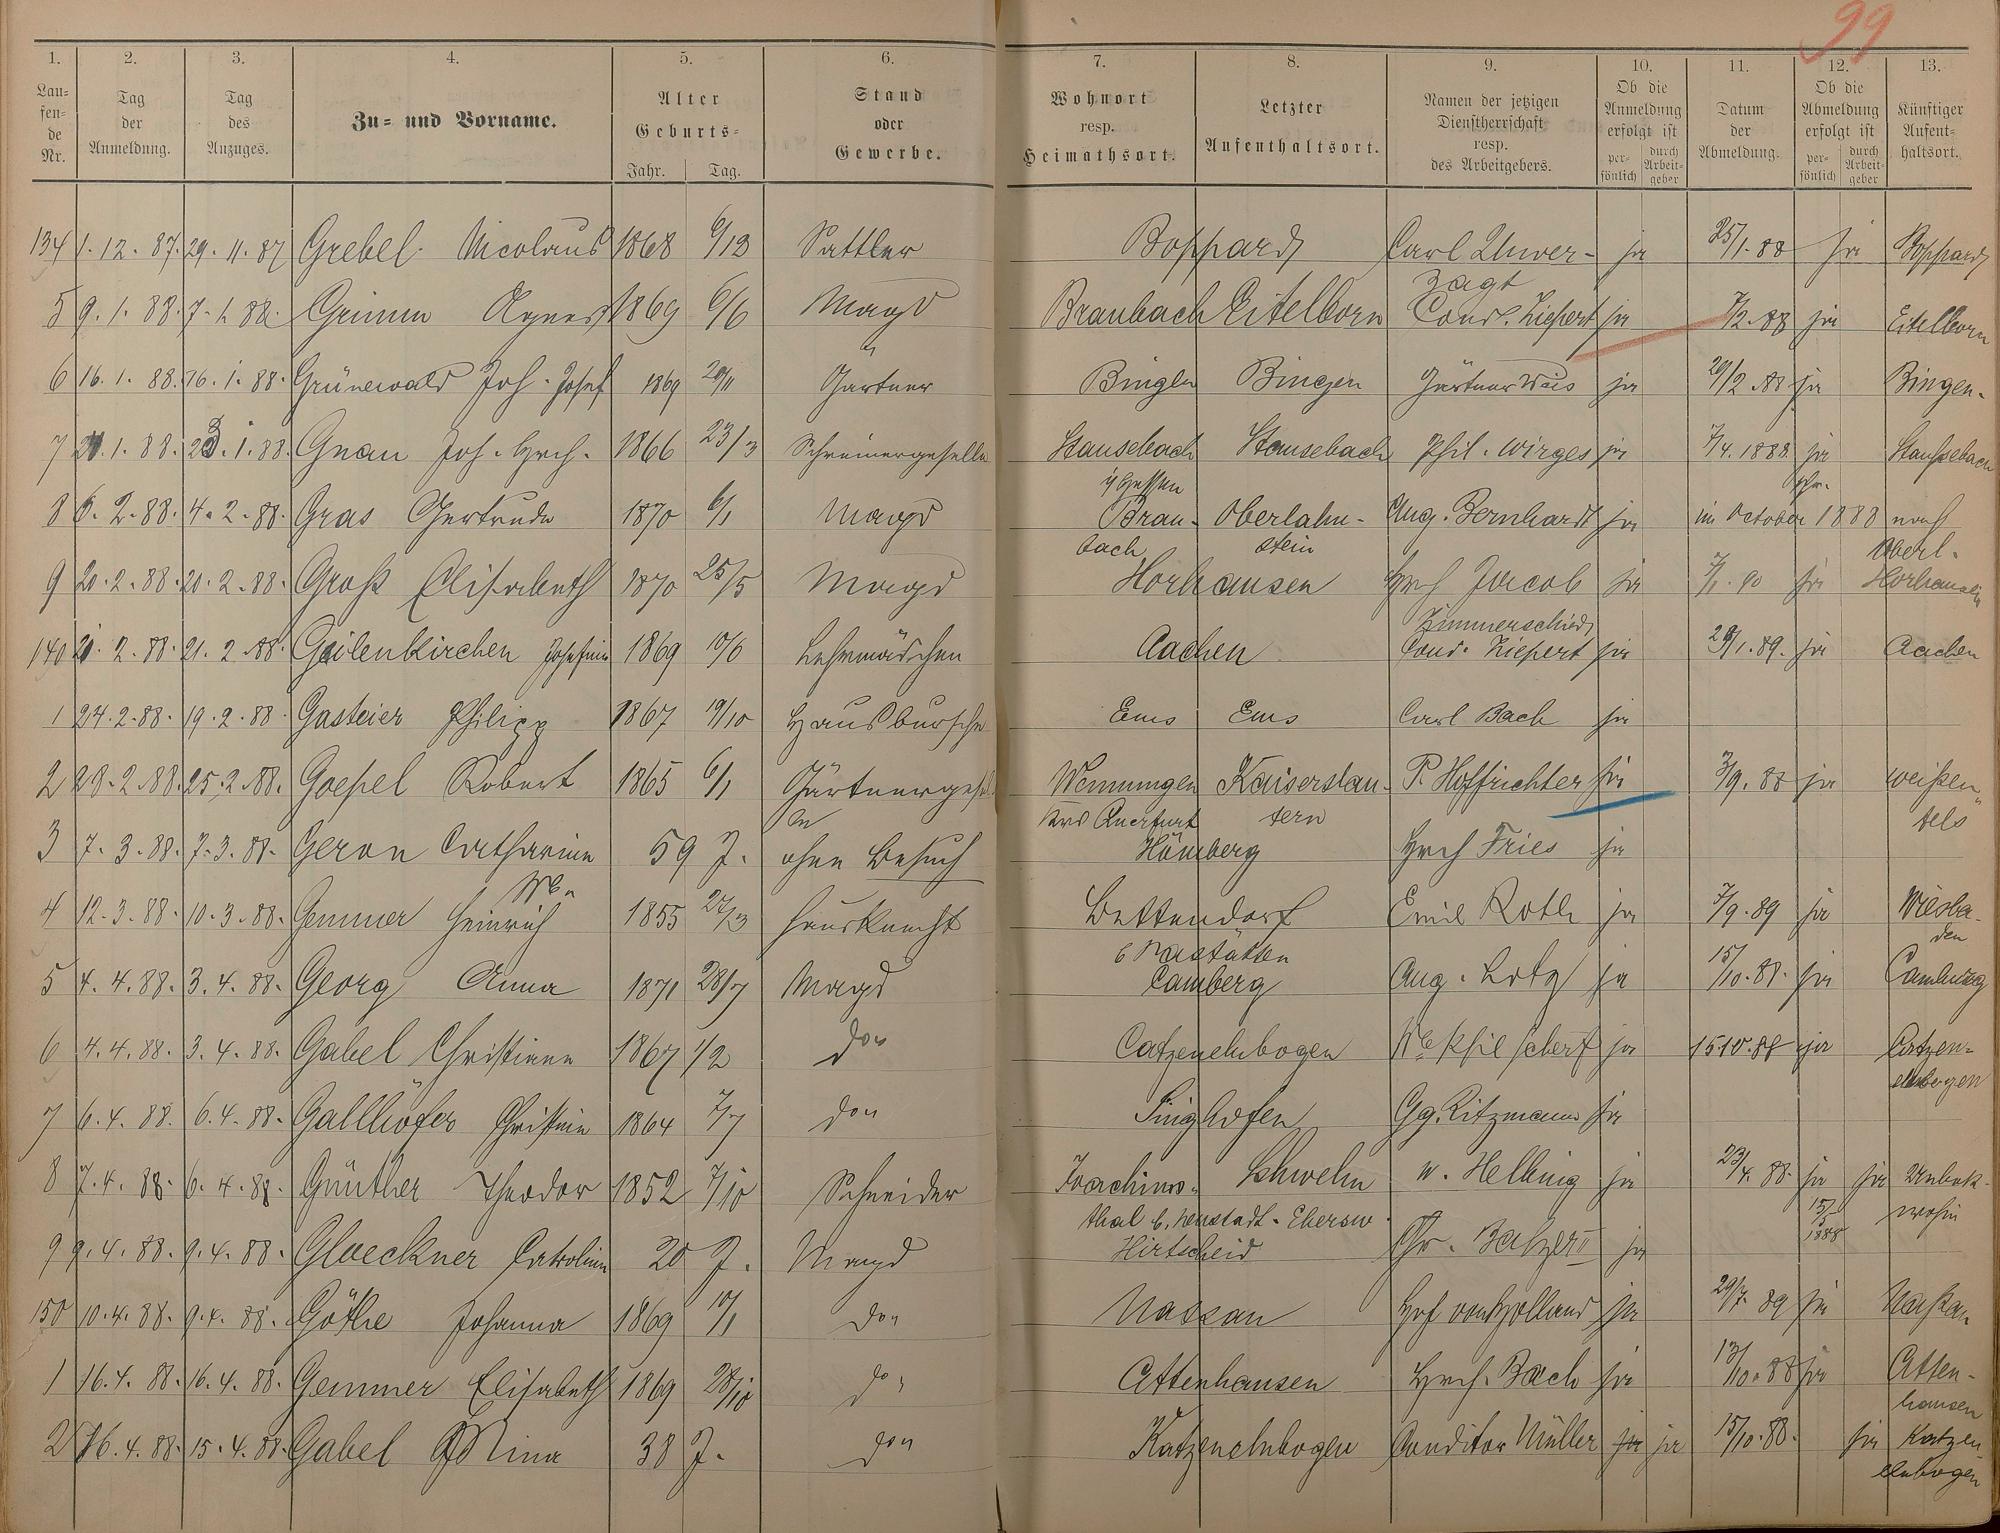 99
1. 2. 3. 4. 5. 6. 7. 8. 9. 10. 11. 12. 13.
Lau=
fen=
de
Nr.
Tag
der
Anmeldung.
Tag
des
Anzuges.
Zu= und Vorname.
Alter
Geburts=
Jahr. Tag.
Stand
oder
Gewerbe.
Wohnort
resp.
Heimathsort.
Letzter
Aufenthaltsort.
Namen der jetzigen
Dienstherrschaft
resp.
des Arbeitgebers.
Ob die
Anmeldung
erfolgt ist
per-
sönlich
durch
Arbeit-
geber
Datum
der
Abmeldung.
Ob die
Abmeldung
erfolgt ist
per-
sönlich
durch
Arbeit-
geber
Künftiger
Aufent-
haltsort.
134 1. 12. 87. 29. 11. 87 Grebel Nicolaus 1868 6/12 Sattler Boppard Carl Unver- ja 25/1. 88 ja Boppard
zagt
5 9. 1. 88. 7. 1. 88. Grimm Agnes 1869 6/6 Magd Braubach Eitelborn Cond. Ziepert ja 7/2. 88 ja Eitelborn
6 16. 1. 88. 16. 1. 88. Grünewald Joh. Josef 1869 20/11 Gärtner Bingen Bingen Gärtner Weis ja 29/2. 88 ja Bingen.
7 21. 1. 88. 23. 1. 88. Gnau Joh. Hrch. 1866 23/3 Schreinergeselle Stausebach Stausebach Phil. Wirges ja 7/4. 1888 ja Staußebach
i/Hessen
8 6. 2. 88. 4. 2. 88. Gras Gertrude 1870 6/1 Magd Brau- Oberlahn- Aug. Bernhardt ja im October 1888 nach
bach stein Oberl.
9 20. 2. 88. 20. 2. 88. Groß Elisabeth 1870 25/5 Magd Horhausen Hrch Jacob ja 7/1. 90 ja Horhausen
Zimmerschied
140 21. 2. 88. 21. 2. 88. Geilenkirchen Josefine 1869 10/6 Lehrmädchen Aachen Cond. Ziepert ja 29/1. 89. ja Aachen
1 24. 2. 88. 19. 2. 88. Gasteier Philipp 1867 19/10 Hausbursche Ems Ems Carl Bach ja
2 28. 2. 88. 25. 2. 88. Goepel Robert 1865 6/1 Gärtnergesel Wennungen Kaiserslau- P. Hoffrichter ja 3/9. 88 ja Weißen-
le Krs Querfurt tern fels
3 7. 3. 88. 7. 3. 88. Geron Catharine 59 J. ohne Besuch Hömberg Hrch Fries ja
Wwe
4 12. 3. 88. 10. 3. 88. Gemmer Heinrich 1855 27/3 Hausknecht Bettendorf Emil Roth ja 7/9. 89 ja Wiesba-
b Nastätten den
5 4. 4. 88. 3. 4. 88. Georg Anna 1871 28/7 Magd Camberg Aug. Lotz ja 15/10. 88. ja Camberg
6 4. 4. 88. 3. 4. 88. Gabel Christiane 1867 1/2 do Catzenelnbogen Wwe Phil Scherf ja 15 10. 88 ja Catzen-
elnbogen
7 6. 4. 88. 6. 4. 88. Gallhöfer Christine 1864 7/7 do Singhofen Gg. Ritzmann ja
8 7. 4. 88. 6. 4. 88. Günther Theodor 1852 7/10 Schneider Joachims- Schwelm W. Helbing ja 23/4. 88. ja ja Unbek-
thal b. Neustadt-Ebersw. 15/5 1888 wohin
9 9. 4. 88. 9. 4. 88. Gloeckner Carolina 20 J. Magd Hirtscheid Chr. Balzer II ja
150 10. 4. 88. 9. 4. 88. Göthe Johanna 1869 10/1 do Nassau Hrch von Holland ja 29/7. 89 ja Naßau
1 16. 4. 88. 16. 4. 88. Gemmer Elisabeth 1869 28/10 do Attenhausen Hrch. Bach ja 13/10. 88 ja Atten-
hausen
2 16. 4. 88. 15. 4. 88. Gabel Mina 38 J. do Katzenelnbogen Conditor Müller ja ja 15/10. 88. ja Katzen-
elnbogen